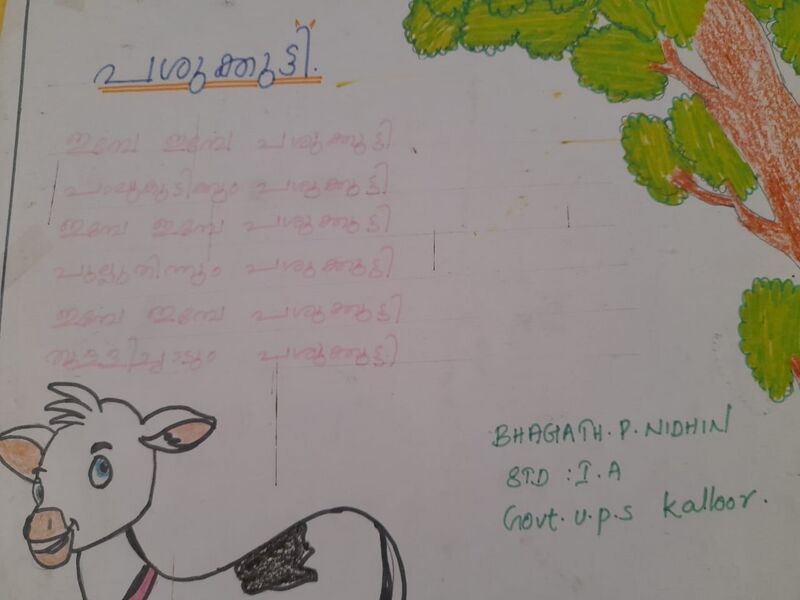 പശുക്കുട്ടി.
ഇമ്പേ ഇമ്പേ പശുക്കുട്ടി
പാലുകുടിക്കും പശുക്കുട്ടി
ഇമ്പേ ഇമ്പേ പശുക്കുട്ടി
പുല്ലുതിന്നും പശുക്കുട്ടി
ഇമ്പേ ഇമ്പേ പശുക്കുട്ടി
തുള്ളിച്ചാടും പശുക്കുട്ടി.
BHAGATH.P.NIDHIN
STD : I.A
Govt. u.p.s Kalloor.